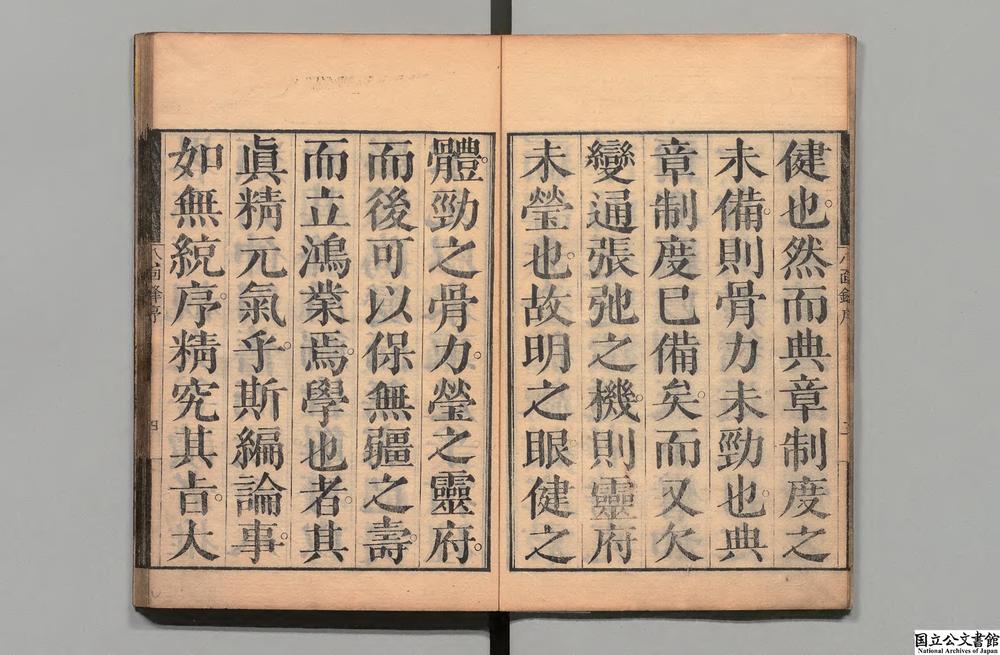 健也。然而典章制度之
未備。則骨力未勁也。典
章制度已備矣。而又欠
變通張弛之機。則靈府
未瑩也。故明之眼健之
體。勁之骨力。瑩之靈府。
而後可以保無疆之壽。
而立鴻業焉。學也者。其
眞精元氣乎。斯編論事。
如無統序。精究其旨。大
八面鋒序
四
国立公文書館
National Archives of Japan